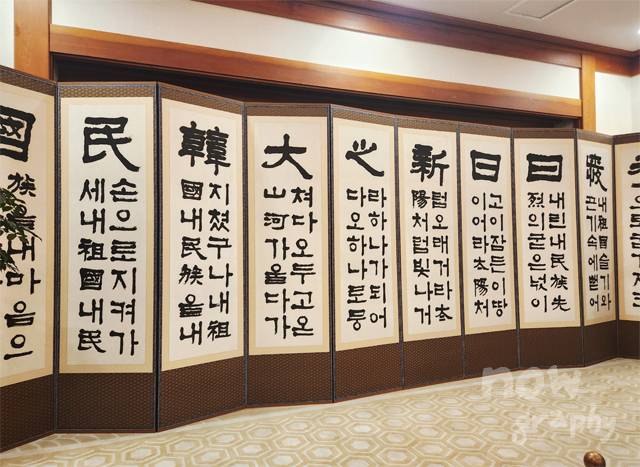 發
내祖國슬기와
끈기속에뻗어
日
내린내民族先
烈의굳은넋이
日
고이잠든이땅
이어라太陽처
新
럼오래거라太
陽처럼빛나거
心
라하나가되어
다오하나로뭉
大
쳐다오두고온
山河가울다가
韓
지쳤구나내祖
國내民族을내
民
손으로지켜가
세내祖國내民
國
族을내마음으
now
graphy